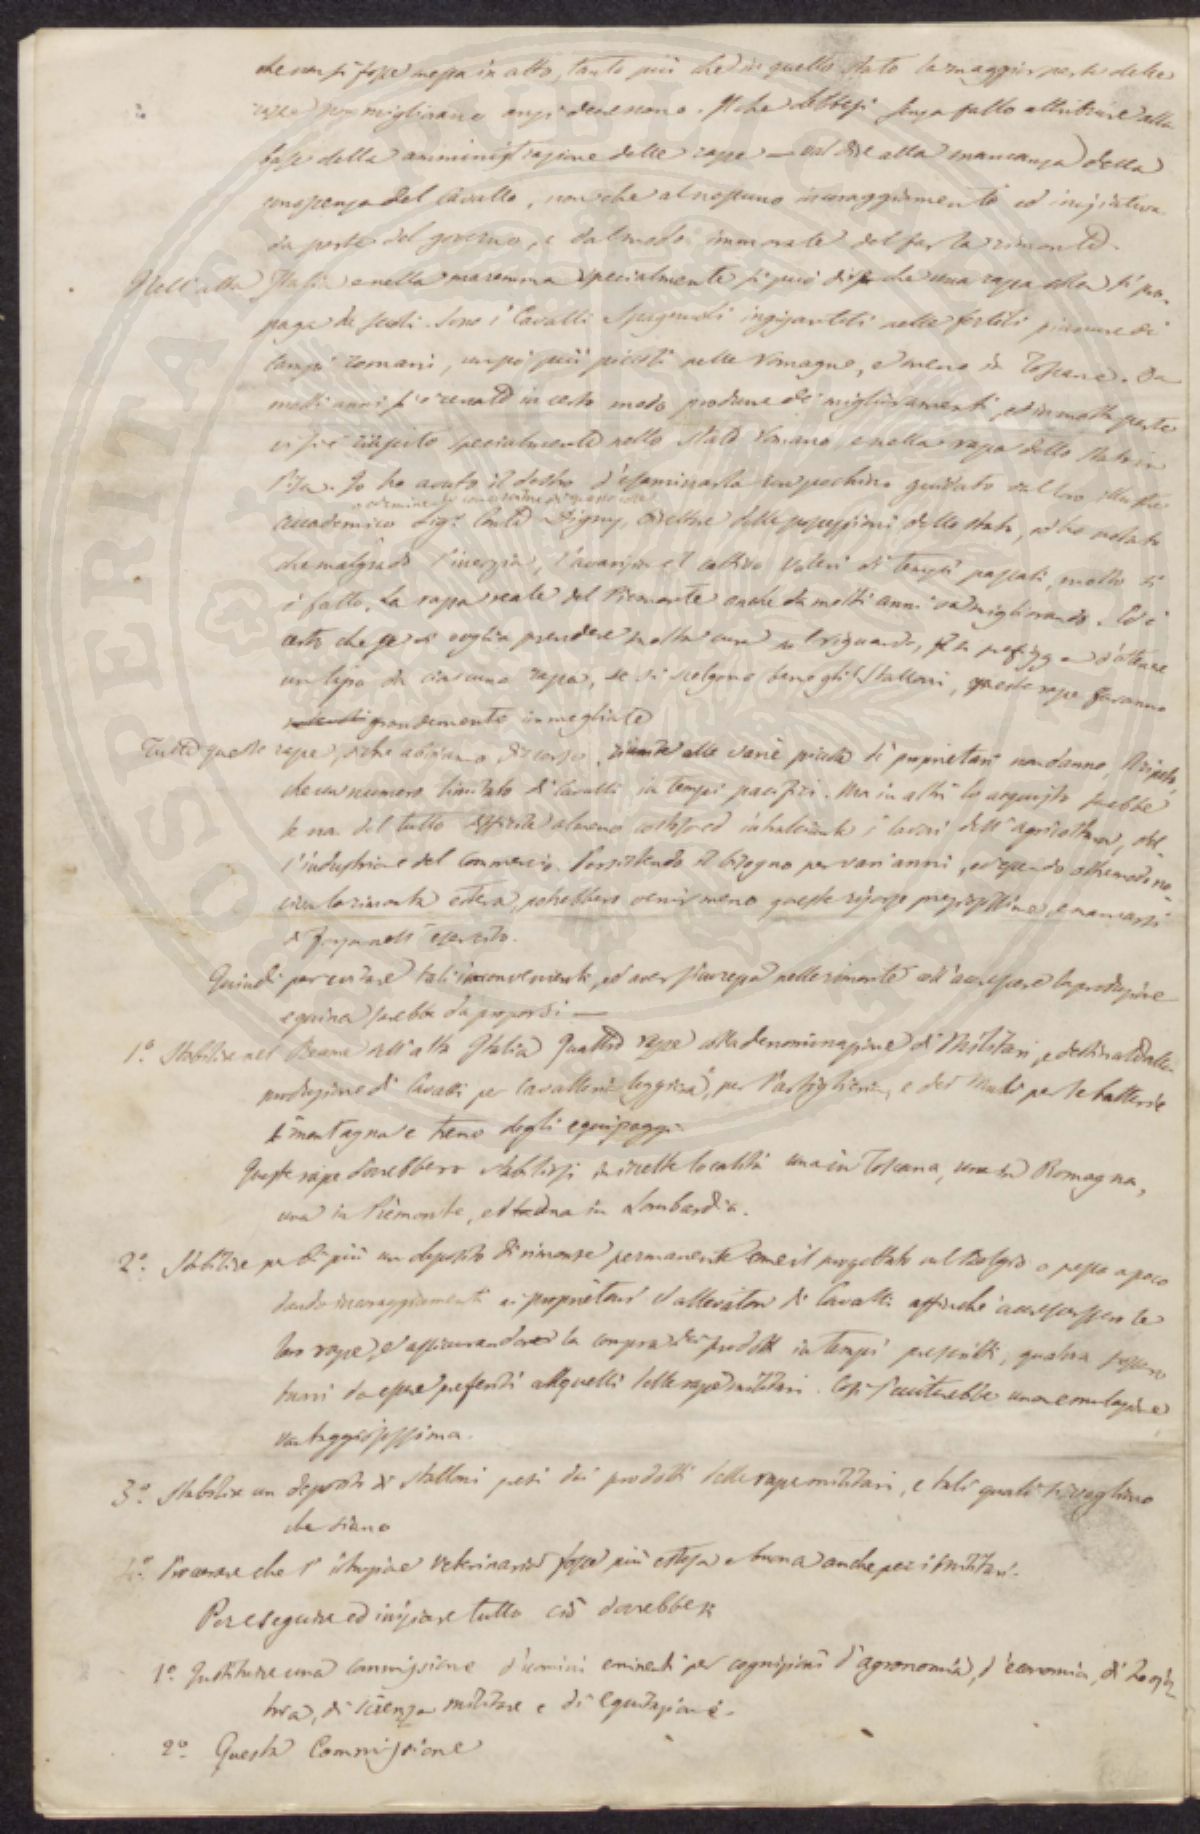 che non si fosse messa in atto, tanto più che in quello stato la maggior parte delle
razze non migliorano anzi degenerano. Il che debbesi senza fallo attribuire alla
base della amministrazione delle razze — val dire alla mancanza della
conoscenza del Cavallo, non che al nessuno incoraggiamento ed iniziativa
da parte del governo, e dal modo immorale del far la rimonta.
Nell'alta Italia e nella maremma specialmente si può dire che una razza sola si pro-
paga da secoli. Sono i Cavalli Spagnuoli ingigantiti nelle fertili pianure dei
campi romani, un po' più piccoli nelle Romagne, e meno in Toscana. Da
molti anni si è cercato in certo modo produrre dei miglioramenti, ed in molta parte
vi si è riuscito specialmente nello Stato Romano, e nella razza dello Stato in
Pisa. Io ho avuto il destro d'esaminarla un pochino guidato dal loro illustre
accademico Sigr. Conte Digny, direttore delle possessioni dello Stato, ed ho notato
che malgrado l'inerzia, l'avarizia el cattivo volere di tempi passati, molto si
è fatto. La razza reale del Piemonte anche da molti anni va migliorando. Ed è
certo che se si voglia prendere molta cura al riguardo, se si prefigga d'ottenere
un tipo da ciascuna razza, se si scelgono bene gli Stalloni, queste razze saranno
grandemente immegliate
Tutte queste razze, di che abbiamo discorso, riunite alle varie private di proprietari non danno, ripeto,
che un numero limitato di Cavalli in tempi pacifici. Ma in altri lo acquisto sarebbe
se non del tutto difficile almeno costoso ed inhalciante i lavori dell'agricoltura, del-
l'industria e del commercio. Persistendo il bisogno per vari anni, ed essendo oltremodo no-
civa la rimonta estera, potrebbero venir meno queste risorse preziosissime, e mancarsi
di forza nell'esercito.
Quindi per evitare tali inconvenienti, ed aver sicurezza nelle rimonte coll'accrescere la produzione
equina sarebbe da proporsi —
1.° Stabilire nel Reame dell'alta Italia Quattro razze colla denominazione di Militari, e destinate alla
produzione di Cavalli per Cavalleria leggiera, per l'artiglieria, e dei Muli per le batterie
di montagna e treno degli equipaggi.
Queste razze dovrebbero stabilirsi in scelte località una in Toscana, una in Romagna,
una in Piemonte, ed una in Lombardia.
2.° Stabilire per di più un deposito di rimonte permanente come il progettato nel Belgio a poco a poco
dando incoraggiamenti ai proprietari ed allevatori di Cavalli affinchè accrescessero le
loro razze, ed assicurandone la compra dei prodotti in tempi prescritti, qualora fossero
buoni da esser preferiti a quelli delle razze militari. Così s'ecciterebbe una emulazione
vantaggiosissima.
3.° Stabilire un deposito di Stalloni presi dai prodotti delle razze militari, e tali quali si vogliano
che siano
4.° Procurare che l'istruzione Veterinaria fosse più estesa e buona anche per i Militari.
Per eseguire ed iniziare tutto ciò dovrebbesi
1.° Instituire una Commissione d'uomini eminenti per cognizioni d'agronomia, d'economia, di Zooja-
tria, di scienza militare e di Equitazione.
2.° Questa Commissione